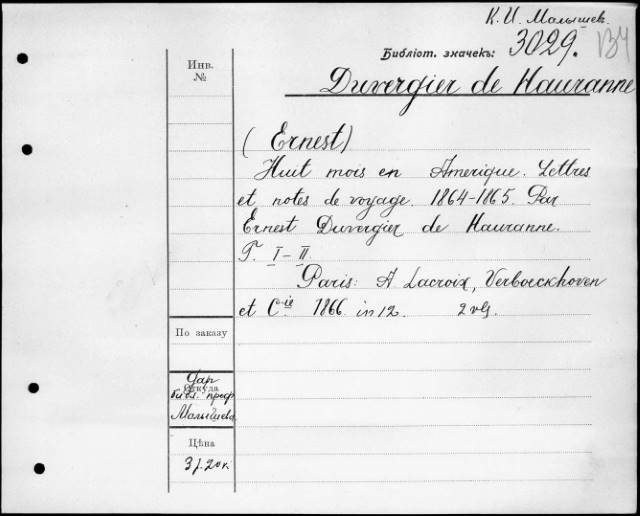 К. И. Малышев.
Библіот. значекъ: 3029. 134
Инв.
№
Duvergier de Hauranne
(Ernest)
Huit mois en Amerique. Lettres
et notes de voyage. 1864-1865. Par
Ernest Duvergier de Hauranne.
T. I-II.
Paris: A Lacroix, Verboeckhoven
et C.ie 1866. in 12. 2 vls.
По заказу
Откуда
Дар
библ. проф
Малышева
Цѣна
3 р. 20 к.